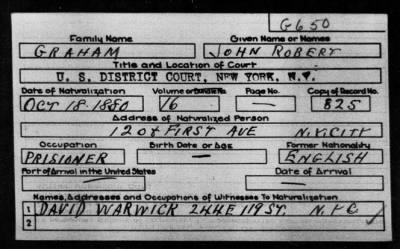 G650
Family Name Given Name or Names
GRAHAM JOHN ROBERT
Title and Location of Court
U. S. DISTRICT COURT, NEW YORK, N.Y.
Date of Naturalization Volume or Bundle No. Page No. Copy of Record No.
OCT 18-1880 16 — 825
Address of Naturalized Person
FIRST AVE N.Y.CITY
Occupation Birth Date or Age Former Nationality
PRISIONER — ENGLISH
Port of Arrival in the United States Date of Arrival
— —
Names, Addresses and Occupations of Witnesses To Naturalization
1 DAVID WARWICK 244 E 119 ST. N.Y.C
2